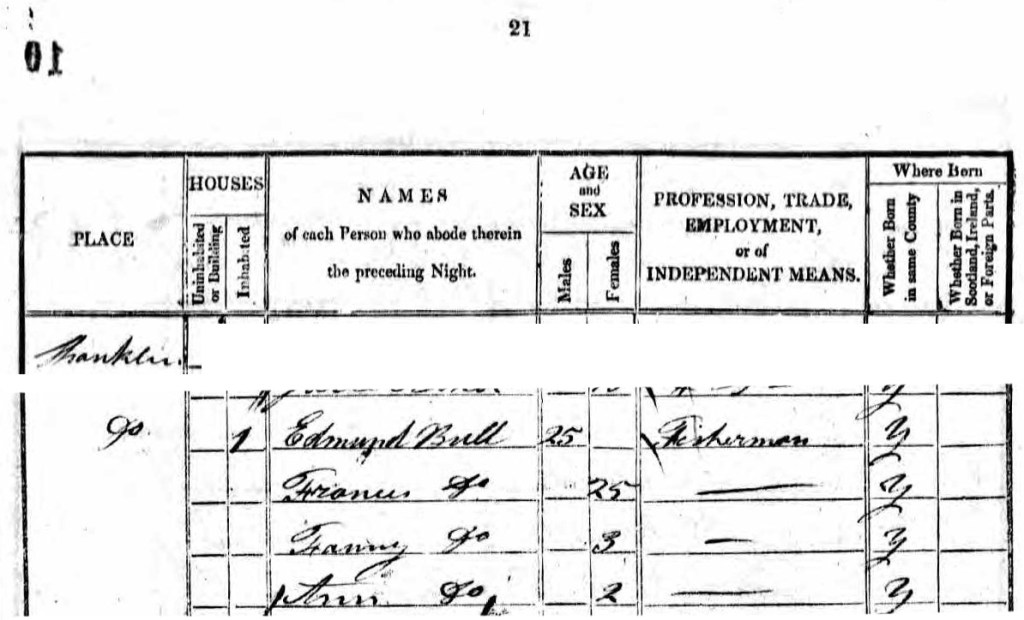 21
10
PLACE
HOUSES
Uninhabited or Building
Inhabited
NAMES
of each Person who abode therein
the preceding Night.
AGE
and
SEX
Males
Females
PROFESSION, TRADE,
EMPLOYMENT,
or of
INDEPENDENT MEANS.
Where Born
Whether Born in same County
Whether Born in Scotland, Ireland, or Foreign Parts.
Shanklin
Do. 1 Edmund Bull 25 Fisherman Y
Frances Do 25 — Y
Fanny Do 3 — Y
Ann Do 2 — Y